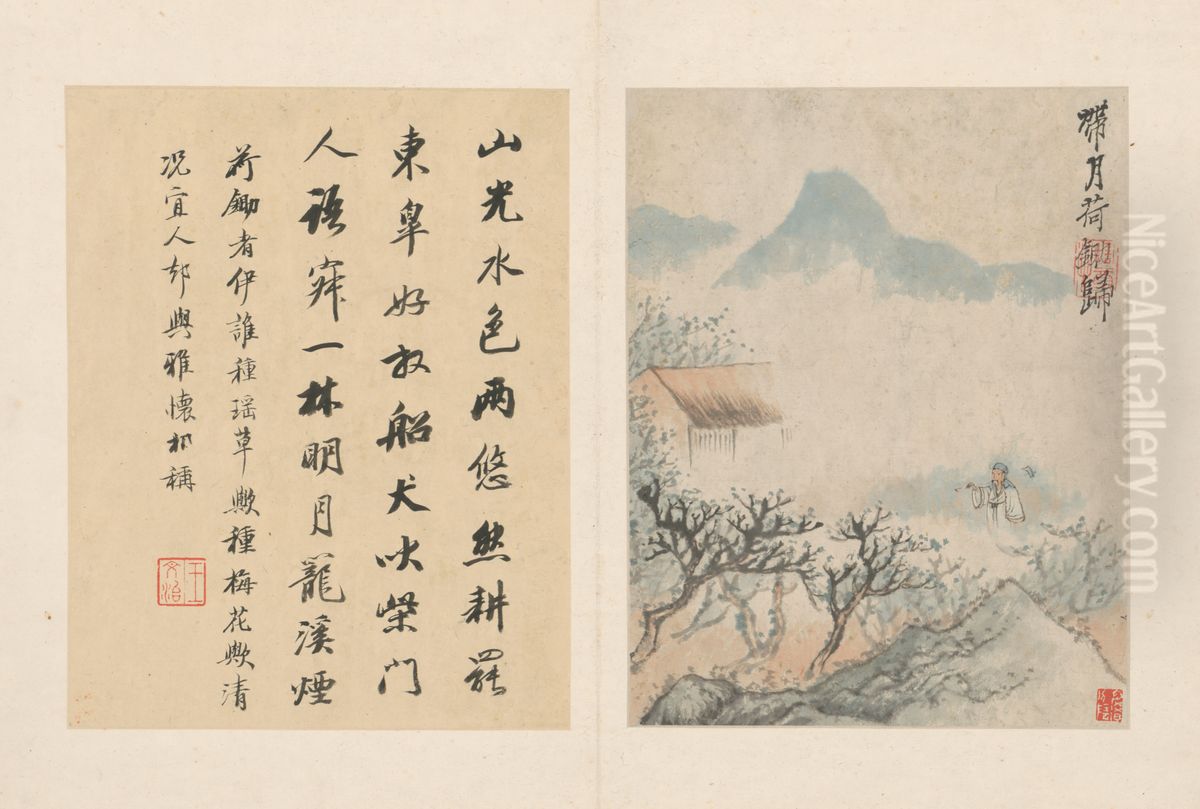 帶月荷鋤歸
山光水色两悠然耕罷
東皐好放船犬吠柴門
人語寂一林明月籠溪煙
荷鋤者伊誰種瑶草歟種梅花歟清
况宜人却與雅懷相稱
王文治
NiceArtGallery.com